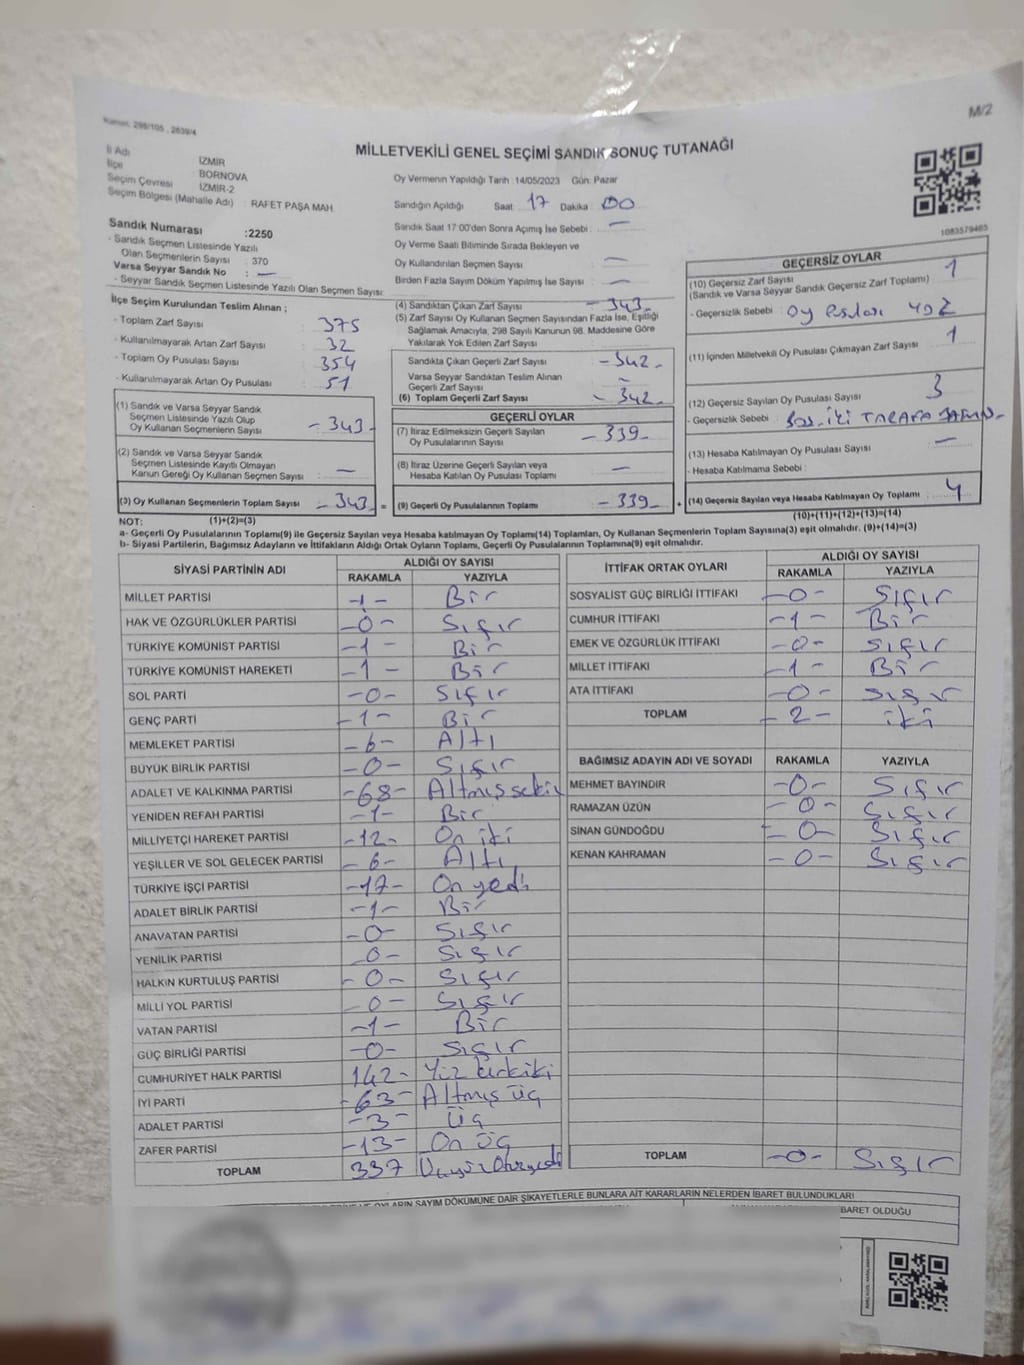 Kanun: 298/105, 2839/4
M/2
MİLLETVEKİLİ GENEL SEÇİMİ SANDIK SONUÇ TUTANAĞI
İl Adı İZMİR
İlçe BORNOVA
Seçim Çevresi İZMİR-2
Seçim Bölgesi (Mahalle Adı) : RAFET PAŞA MAH.
Sandık Numarası :2250
- Sandık Seçmen Listesinde Yazılı
Olan Seçmenlerin Sayısı : 370
Varsa Seyyar Sandık No : —
- Seyyar Sandık Seçmen Listesinde Yazılı Olan Seçmen Sayısı:
Oy Vermenin Yapıldığı Tarih :14/05/2023 Gün: Pazar
Sandığın Açıldığı Saat : 17 Dakika : 00
Sandık Saat 17:00'den Sonra Açılmış İse Sebebi : —
Oy Verme Saati Bitiminde Sırada Bekleyen ve
Oy Kullandırılan Seçmen Sayısı : —
Birden Fazla Sayım Döküm Yapılmış İse Sayısı : —
1083579465
İlçe Seçim Kurulundan Teslim Alınan ;
- Toplam Zarf Sayısı : 375
- Kullanılmayarak Artan Zarf Sayısı : 32
- Toplam Oy Pusulası Sayısı : 354
- Kullanılmayarak Artan Oy Pusulası : 51
(1) Sandık ve Varsa Seyyar Sandık
Seçmen Listesinde Yazılı Olup
Oy Kullanan Seçmenlerin Sayısı : - 343 -
(2) Sandık ve Varsa Seyyar Sandık
Seçmen Listesinde Kayıtlı Olmayan
Kanun Gereği Oy Kullanan Seçmen Sayısı : —
(3) Oy Kullanan Seçmenlerin Toplam Sayısı : - 343 - =
(1)+(2)=(3)
(4) Sandıktan Çıkan Zarf Sayısı : - 343 -
(5) Zarf Sayısı Oy Kullanan Seçmen Sayısından Fazla İse, Eşitliği
Sağlamak Amacıyla, 298 Sayılı Kanunun 98. Maddesine Göre
Yakılarak Yok Edilen Zarf Sayısı :
Sandıkta Çıkan Geçerli Zarf Sayısı : - 342 -
Varsa Seyyar Sandıktan Teslim Alınan
Geçerli Zarf Sayısı : —
(6) Toplam Geçerli Zarf Sayısı : - 342 -
GEÇERLİ OYLAR
(7) İtiraz Edilmeksizin Geçerli Sayılan
Oy Pusulalarının Sayısı : - 339 -
(8) İtiraz Üzerine Geçerli Sayılan veya
Hesaba Katılan Oy Pusulası Toplamı : —
(9) Geçerli Oy Pusulalarının Toplamı : - 339 - +
GEÇERSİZ OYLAR
(10) Geçersiz Zarf Sayısı : 1
(Sandık ve Varsa Seyyar Sandık Geçersiz Zarf Toplamı)
- Geçersizlik Sebebi : Oy Pusulası
(11) İçinden Milletvekili Oy Pusulası Çıkmayan Zarf Sayısı : 1
(12) Geçersiz Sayılan Oy Pusulası Sayısı : 3
- Geçersizlik Sebebi : İKİ TARAFA
(13) Hesaba Katılmayan Oy Pusulası Sayısı : —
- Hesaba Katılmama Sebebi :
(14) Geçersiz Sayılan veya Hesaba Katılmayan Oy Toplamı : 4
(10)+(11)+(12)+(13)=(14)
NOT:
a- Geçerli Oy Pusulalarının Toplamı(9) ile Geçersiz Sayılan veya Hesaba katılmayan Oy Toplamı(14) Toplamları, Oy Kullanan Seçmenlerin Toplam Sayısına(3) eşit olmalıdır. (9)+(14)=(3)
b- Siyasi Partilerin, Bağımsız Adayların ve İttifakların Aldığı Ortak Oyların Toplamı, Geçerli Oy Pusulalarının Toplamına(9) eşit olmalıdır.
SİYASİ PARTİNİN ADI ALDIĞI OY SAYISI
RAKAMLA YAZIYLA
MİLLET PARTİSİ -1- Bir
HAK VE ÖZGÜRLÜKLER PARTİSİ -0- Sıfır
TÜRKİYE KOMÜNİST PARTİSİ -1- Bir
TÜRKİYE KOMÜNİST HAREKETİ -1- Bir
SOL PARTİ -0- Sıfır
GENÇ PARTİ -1- Bir
MEMLEKET PARTİSİ -6- Altı
BÜYÜK BİRLİK PARTİSİ -0- Sıfır
ADALET VE KALKINMA PARTİSİ -68- Altmışsekiz
YENİDEN REFAH PARTİSİ -1- Bir
MİLLİYETÇİ HAREKET PARTİSİ -12- On iki
YEŞİLLER VE SOL GELECEK PARTİSİ -6- Altı
TÜRKİYE İŞÇİ PARTİSİ -17- On yedi
ADALET BİRLİK PARTİSİ -1- Bir
ANAVATAN PARTİSİ -0- Sıfır
YENİLİK PARTİSİ -0- Sıfır
HALKIN KURTULUŞ PARTİSİ -0- Sıfır
MİLLİ YOL PARTİSİ -0- Sıfır
VATAN PARTİSİ -1- Bir
GÜÇ BİRLİĞİ PARTİSİ -0- Sıfır
CUMHURİYET HALK PARTİSİ 142- Yüz kırkiki
İYİ PARTİ -63- Altmış üç
ADALET PARTİSİ -3- Üç
ZAFER PARTİSİ -13- On üç
TOPLAM 337 Üçyüz Otuzyedi
İTTİFAK ORTAK OYLARI ALDIĞI OY SAYISI
RAKAMLA YAZIYLA
SOSYALİST GÜÇ BİRLİĞİ İTTİFAKI -0- Sıfır
CUMHUR İTTİFAKI -1- Bir
EMEK VE ÖZGÜRLÜK İTTİFAKI -0- Sıfır
MİLLET İTTİFAKI -1- Bir
ATA İTTİFAKI -0- Sıfır
TOPLAM -2- iki
BAĞIMSIZ ADAYIN ADI VE SOYADI RAKAMLA YAZIYLA
MEHMET BAYINDIR -0- Sıfır
RAMAZAN ÜZÜN -0- Sıfır
SİNAN GÜNDOĞDU -0- Sıfır
KENAN KAHRAMAN -0- Sıfır
TOPLAM -0- Sıfır
OYLARIN SAYIM DÖKÜMÜNE DAİR ŞİKAYETLERLE BUNLARA AİT KARARLARIN NELERDEN İBARET BULUNDUKLARI
İBARET OLDUĞU